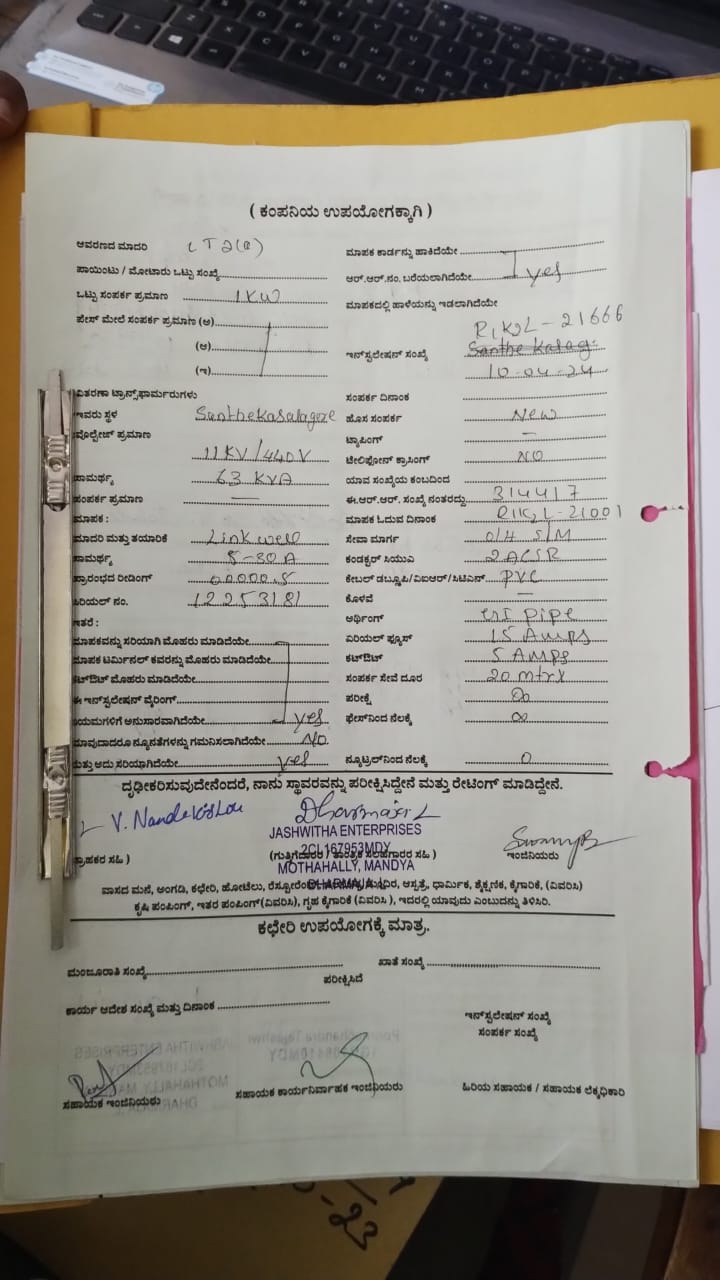 ( ಕಂಪನಿಯ ಉಪಯೋಗಕ್ಕಾಗಿ )
ಆವರಣದ ಮಾದರಿ LT2(a)
ಪಾಯಿಂಟು / ಮೋಟಾರು ಒಟ್ಟು ಸಂಖ್ಯೆ
ಒಟ್ಟು ಸಂಪರ್ಕ ಪ್ರಮಾಣ 1KW
ಫೇಸ್ ಮೇಲೆ ಸಂಪರ್ಕ ಪ್ರಮಾಣ (ಅ)
(ಆ)
(ಇ)
ವಿತರಣಾ ಟ್ರಾನ್ಸ್‌ಫಾರ್ಮರುಗಳು
ಇವರು ಸ್ಥಳ Santhekasalagere
ವೋಲ್ಟೇಜ್ ಪ್ರಮಾಣ
11KV/440V
ಸಾಮರ್ಥ್ಯ 63 KVA
ಸಂಪರ್ಕ ಪ್ರಮಾಣ —
ಮಾಪಕ :
ಮಾದರಿ ಮತ್ತು ತಯಾರಿಕೆ Linkwell
ಸಾಮರ್ಥ್ಯ 5-30A
ಪ್ರಾರಂಭದ ರೀಡಿಂಗ್ 00000.5
ಸಿರಿಯಲ್ ನಂ. 12253181
ಇತರೆ :
ಮಾಪಕವನ್ನು ಸರಿಯಾಗಿ ಮೊಹರು ಮಾಡಿದೆಯೇ
ಮಾಪಕ ಟರ್ಮಿನಲ್ ಕವರನ್ನು ಮೊಹರು ಮಾಡಿದೆಯೇ
ಕಟ್‌ಔಟ್ ಮೊಹರು ಮಾಡಿದೆಯೇ
ಈ ಇನ್‌ಸ್ಟಲೇಷನ್ ವೈರಿಂಗ್
ನಿಯಮಗಳಿಗೆ ಅನುಸಾರವಾಗಿದೆಯೇ yes
ಯಾವುದಾದರೂ ನ್ಯೂನತೆಗಳನ್ನು ಗಮನಿಸಲಾಗಿದೆಯೇ NO
ಮತ್ತು ಅದು ಸರಿಯಾಗಿದೆಯೇ yes
ಮಾಪಕ ಕಾರ್ಡನ್ನು ಹಾಕಿದೆಯೇ
ಆರ್.ಆರ್.ನಂ. ಬರೆಯಲಾಗಿದೆಯೇ yes
ಮಾಪಕದಲ್ಲಿ ಹಾಳೆಯನ್ನು ಇಡಲಾಗಿದೆಯೇ
R1K2L-21666
ಇನ್‌ಸ್ಟಲೇಷನ್ ಸಂಖ್ಯೆ Santhe Kasag
10-04-24
ಸಂಪರ್ಕ ದಿನಾಂಕ
ಹೊಸ ಸಂಪರ್ಕ New
ಟ್ಯಾಪಿಂಗ್ —
ಟೆಲಿಫೋನ್ ಕ್ರಾಸಿಂಗ್ NO
ಯಾವ ಸಂಖ್ಯೆಯ ಕಂಬದಿಂದ
ಈ.ಆರ್.ಆರ್. ಸಂಖ್ಯೆ ನಂತರದ್ದು 314417
ಮಾಪಕ ಓದುವ ದಿನಾಂಕ R1K2L-21001
ಸೇವಾ ಮಾರ್ಗ O/H S/M
ಕಂಡಕ್ಟರ್ ಸಿಯುಎ 2 ACSR
ಕೇಬಲ್ ಡಬ್ಲ್ಯೂಪಿ/ವಿಐಆರ್/ಸಿಟಿಎನ್ PVC
ಕೊಳವೆ —
ಅರ್ಥಿಂಗ್ GI pipe
ಎರಿಯಲ್ ಫ್ಯೂಸ್ 15 Amps
ಕಟ್‌ಔಟ್ 5 Amps
ಸಂಪರ್ಕ ಸೇವೆ ದೂರ 20 mtrx
ಪರೀಕ್ಷೆ ∞
ಫೇಸ್‌ನಿಂದ ನೆಲಕ್ಕೆ ∞
ನ್ಯೂಟ್ರಲ್‌ನಿಂದ ನೆಲಕ್ಕೆ 0
ದೃಢೀಕರಿಸುವುದೇನೆಂದರೆ, ನಾನು ಸ್ಥಾವರವನ್ನು ಪರೀಕ್ಷಿಸಿದ್ದೇನೆ ಮತ್ತು ರೇಟಿಂಗ್ ಮಾಡಿದ್ದೇನೆ.
V. Nandakishor
Dharmaja L
JASHWITHA ENTERPRISES
2CL167953MDY
ಗ್ರಾಹಕರ ಸಹಿ )
(ಗುತ್ತಿಗೆದಾರರ / ತಾಂತ್ರಿಕ ಸಲಹಗಾರರ ಸಹಿ )
ಇಂಜಿನಿಯರು
MOTHAHALLY, MANDYA
ವಾಸದ ಮನೆ, ಅಂಗಡಿ, ಕಛೇರಿ, ಹೋಟೆಲು, ಆಸ್ಪತ್ರೆ, ಧಾರ್ಮಿಕ, ಶೈಕ್ಷಣಿಕ, ಕೈಗಾರಿಕೆ, (ವಿವರಿಸಿ)
ಕೃಷಿ ಪಂಪಿಂಗ್, ಇತರ ಪಂಪಿಂಗ್(ವಿವರಿಸಿ), ಗೃಹ ಕೈಗಾರಿಕೆ (ವಿವರಿಸಿ ), ಇದರಲ್ಲಿ ಯಾವುದು ಎಂಬುದನ್ನು ತಿಳಿಸಿರಿ.
ಕಛೇರಿ ಉಪಯೋಗಕ್ಕೆ ಮಾತ್ರ.
ಮಂಜೂರಾತಿ ಸಂಖ್ಯೆ ಖಾತೆ ಸಂಖ್ಯೆ
ಪರೀಕ್ಷಿಸಿದೆ
ಕಾರ್ಯ ಆದೇಶ ಸಂಖ್ಯೆ ಮತ್ತು ದಿನಾಂಕ
ಇನ್‌ಸ್ಟಲೇಷನ್ ಸಂಖ್ಯೆ
ಸಂಪರ್ಕ ಸಂಖ್ಯೆ
ಸಹಾಯಕ ಇಂಜಿನಿಯರು
ಸಹಾಯಕ ಕಾರ್ಯನಿರ್ವಾಹಕ ಇಂಜಿನಿಯರು
ಹಿರಿಯ ಸಹಾಯಕ / ಸಹಾಯಕ ಲೆಕ್ಕಧಿಕಾರಿ